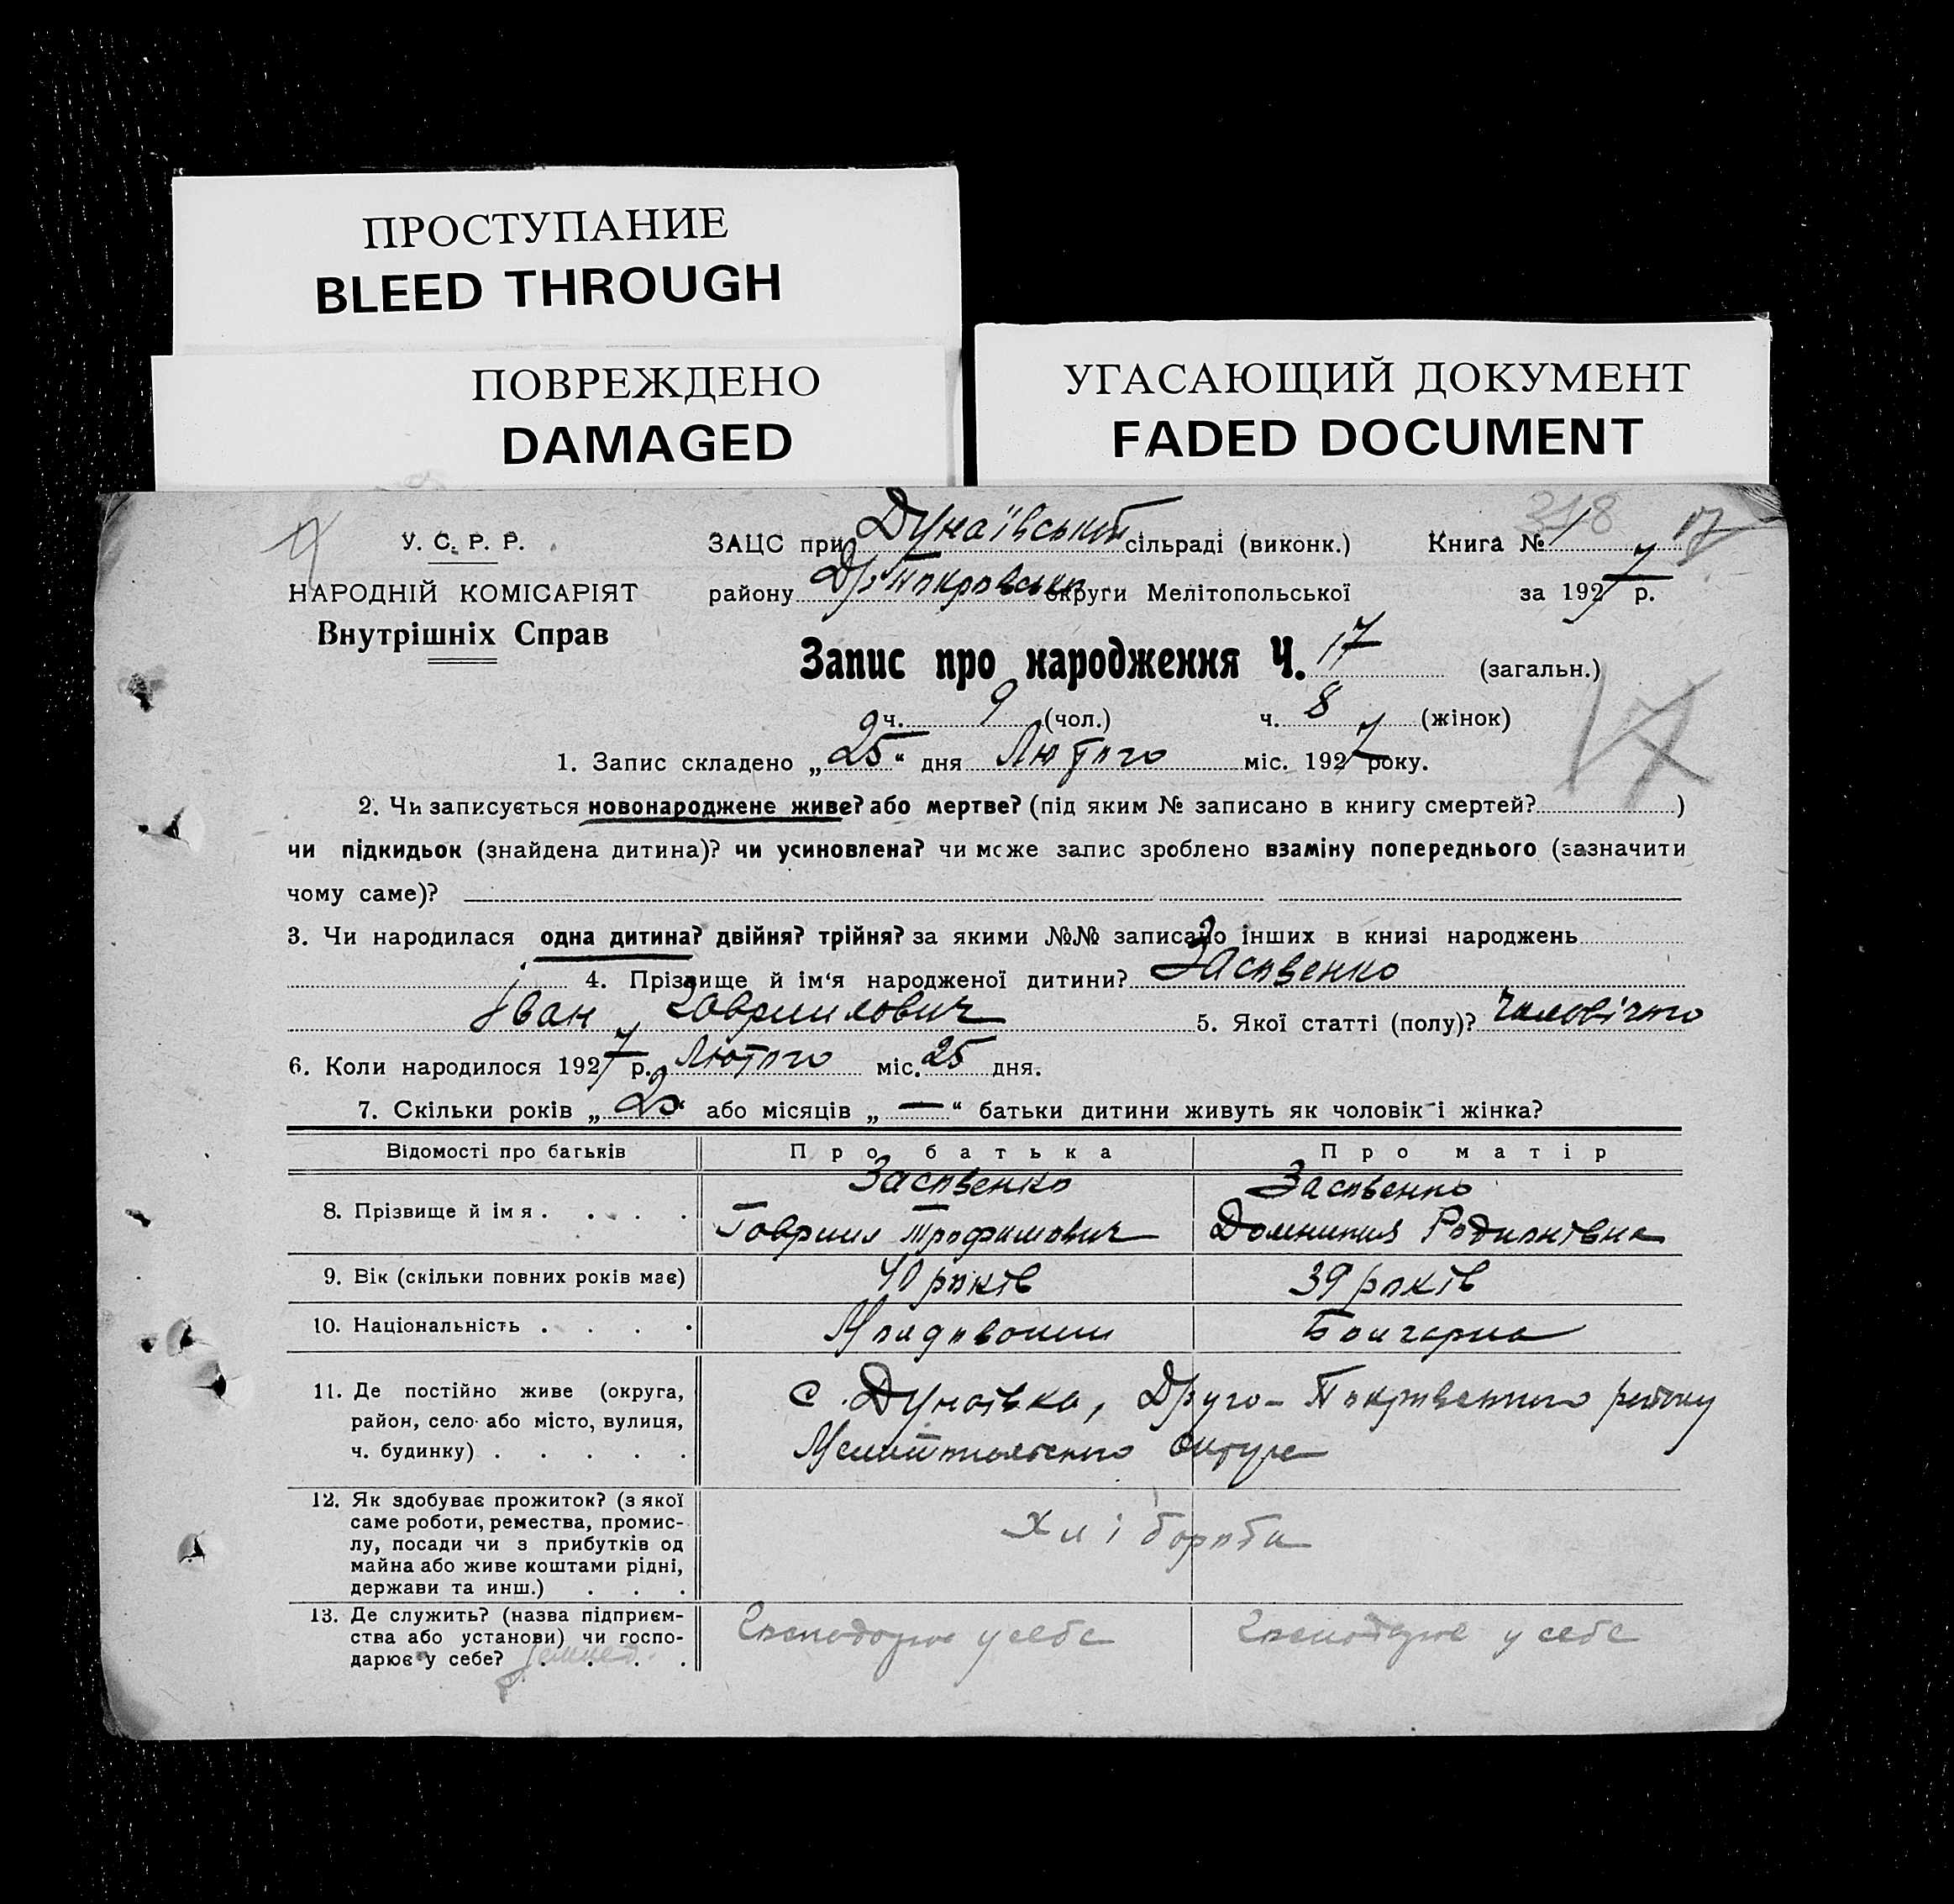 ПРОСТУПАНИЕ
BLEED THROUGH
ПОВРЕЖДЕНО
DAMAGED
УГАСАЮЩИЙ ДОКУМЕНТ
FADED DOCUMENT
318
У. С. Р. Р. ЗАЦС при Дунаївський сільраді (виконк.) Книга № 1 17
НАРОДНІЙ КОМІСАРІЯТ району Др. Покровськ округи Мелітопольської за 1927 р.
Внутрішніх Справ
Запис про народження Ч. 17 (загальн.)
ч. 9 (чол.) ч. 8 (жінок)
17
1. Запис складено „25“ дня Лютого міс. 1927 року.
2. Чи записується новонароджене живе? або мертве? (під яким № записано в книгу смертей? )
чи підкидьок (знайдена дитина)? чи усиновлена? чи може запис зроблено взаміну попереднього (зазначити
чому саме)?
3. Чи народилася одна дитина? двійня? трійня? за якими №№ записано інших в книзі народжень
4. Прізвище й ім‘я народженої дитини? Засовенко
Іван Гавриилович 5. Якої статті (полу)? Чоловічого
6. Коли народилося 1927 р. Лютого міс. 25 дня.
7. Скільки років „20“ або місяців „—“ батьки дитини живуть як чоловік і жінка?
Відомості про батьків Про батька Про матір
8. Прізвище й імя . . . . .
Засовенко
Гавриил Трофимович
Засовенко
Домникия Родионівна
9. Вік (скільки повних років має) 40 років 39 років
10. Національність . . . . Молдовании Болгарка
11. Де постійно живе (округа,
район, село або місто, вулиця,
ч. будинку) . . . . .
с. Дунаївка, Друго-Покровського району
Мелитопольского округа
12. Як здобуває прожиток? (з якої
саме роботи, ремества, промис-
лу, посади чи з прибутків од
майна або живе коштами рідні,
держави та инш.) . . .
Хліборобта
13. Де служить? (назва підприєм-
ства або установи) чи госпо-
дарює у себе? . . . .
Господарює у себе Господарює у себе